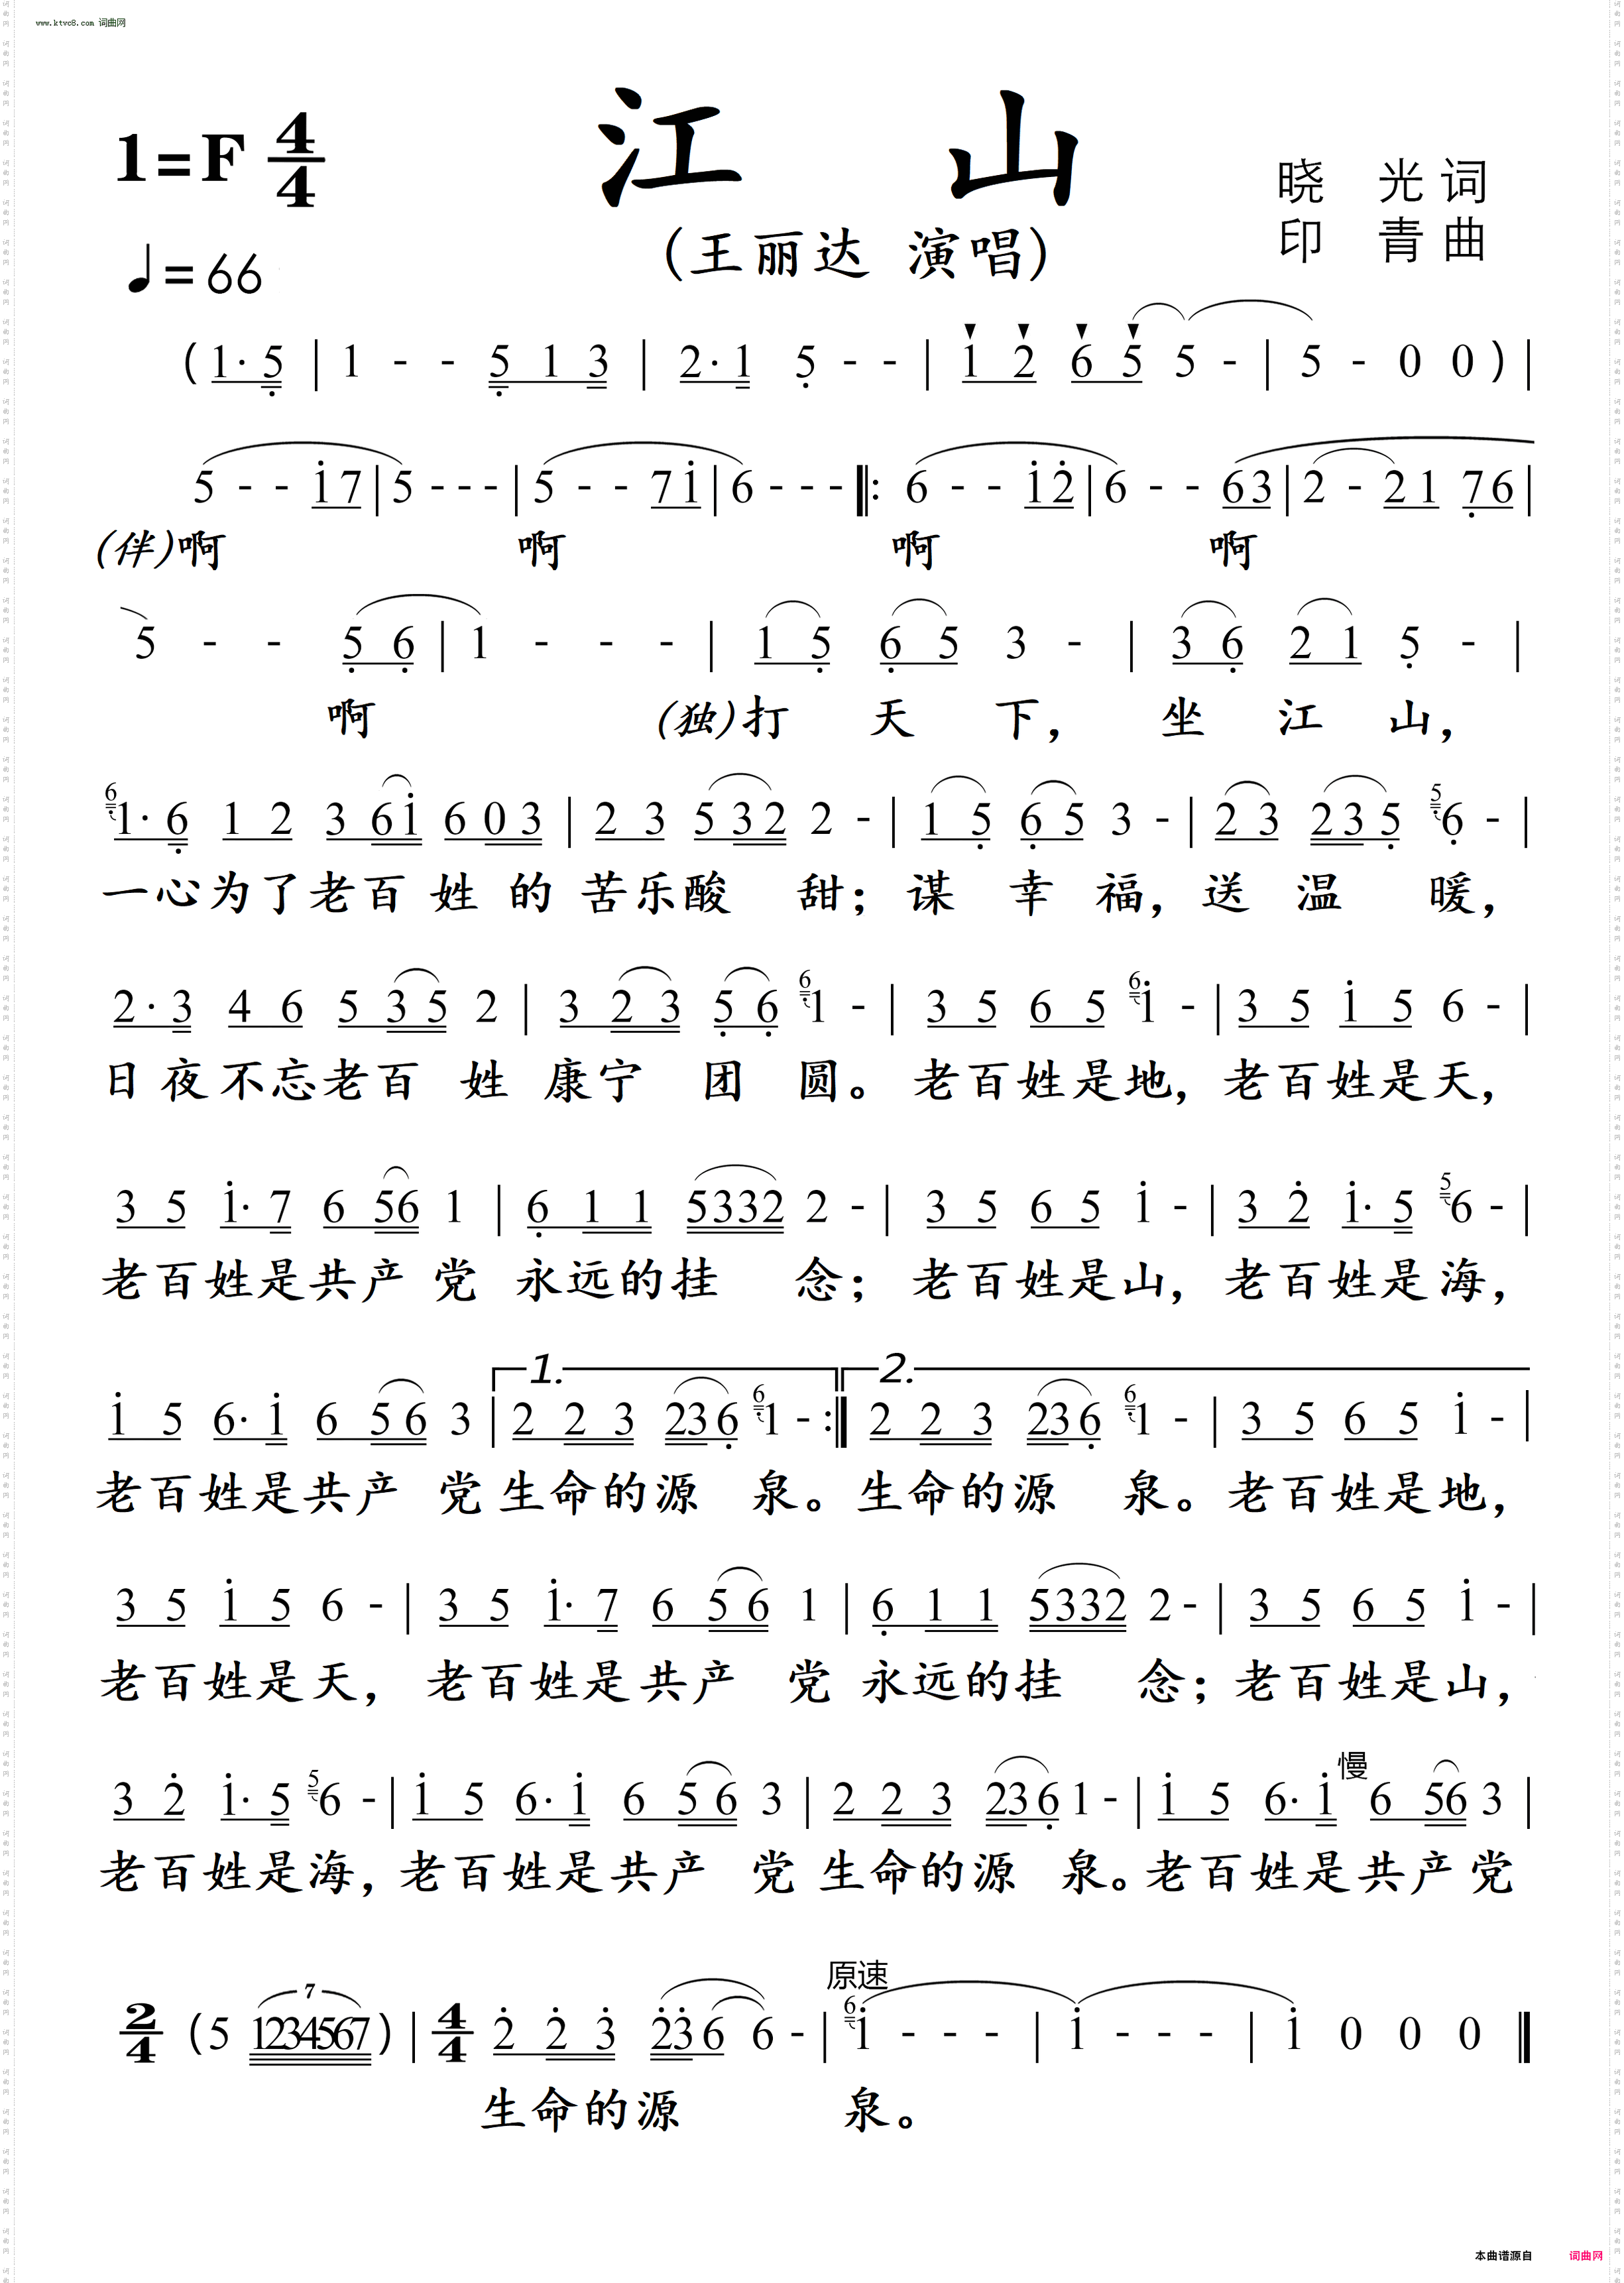 www.ktvc8.com 词曲网
江 山
1=F 4/4
晓 光 词
印 青 曲
(王丽达 演唱)
♩=66
(1· 5̣ | 1 - - 5̣ 1 3 | 2· 1 5̣ - - | 1 2 6 5 5 - | 5 - 0 0 ) |
5 - - i 7 | 5 - - - | 5 - - 7 i | 6 - - - ‖: 6 - - i 2̇ | 6 - - 6 3 | 2 - 2 1 7̣ 6 |
(伴)啊 啊 啊 啊
5 - - 5̣ 6̣ | 1 - - - | 1 5̣ 6̣ 5 3 - | 3 6̣ 2 1 5̣ - |
啊 (独)打 天 下， 坐 江 山，
6̣ 1· 6̣ 1 2 3 6 i 6 0 3 | 2 3 5 3 2 2 - | 1 5̣ 6̣ 5 3 - | 2 3 2 3 5̣ 5 6̣ - |
一心为了老百 姓 的 苦乐酸 甜；谋 幸 福，送 温 暖，
2· 3 4 6 5 3 5 2 | 3 2 3 5̣ 6̣ 6̣ 1 - | 3 5 6 5 6 i - | 3 5 i 5 6 - |
日夜不忘老百 姓 康宁 团 圆。老百姓是地，老百姓是天，
3 5 i· 7 6 5 6 1 | 6̣ 1 1 5 3 3 2 2 - | 3 5 6 5 i - | 3 2̇ i· 5 5 6 - |
老百姓是共产 党 永远的挂 念；老百姓是山，老百姓是海，
1. 2.
i 5 6· i 6 5 6 3 | 2 2 3 2 3 6̣ 6̣ 1 - :‖ 2 2 3 2 3 6̣ 6̣ 1 - | 3 5 6 5 i - |
老百姓是共产 党生命的源 泉。生命的源 泉。老百姓是地，
3 5 i 5 6 - | 3 5 i· 7 6 5 6 1 | 6̣ 1 1 5 3 3 2 2 - | 3 5 6 5 i - |
老百姓是天，老百姓是共产 党 永远的挂 念；老百姓是山，
慢
3 2̇ i· 5 5 6 - | i 5 6· i 6 5 6 3 | 2 2 3 2 3 6̣ 1 - | i 5 6· i 6 5 6 3 |
老百姓是海，老百姓是共产 党 生命的源 泉。老百姓是共产党
原速
2/4 (5 7 1234567) | 4/4 2̇ 2̇ 3̇ 2̇ 3̇ 6 6 - | 6 i - - - | i - - - | i 0 0 0 ‖
生命的源 泉。
本曲谱源自 词曲网